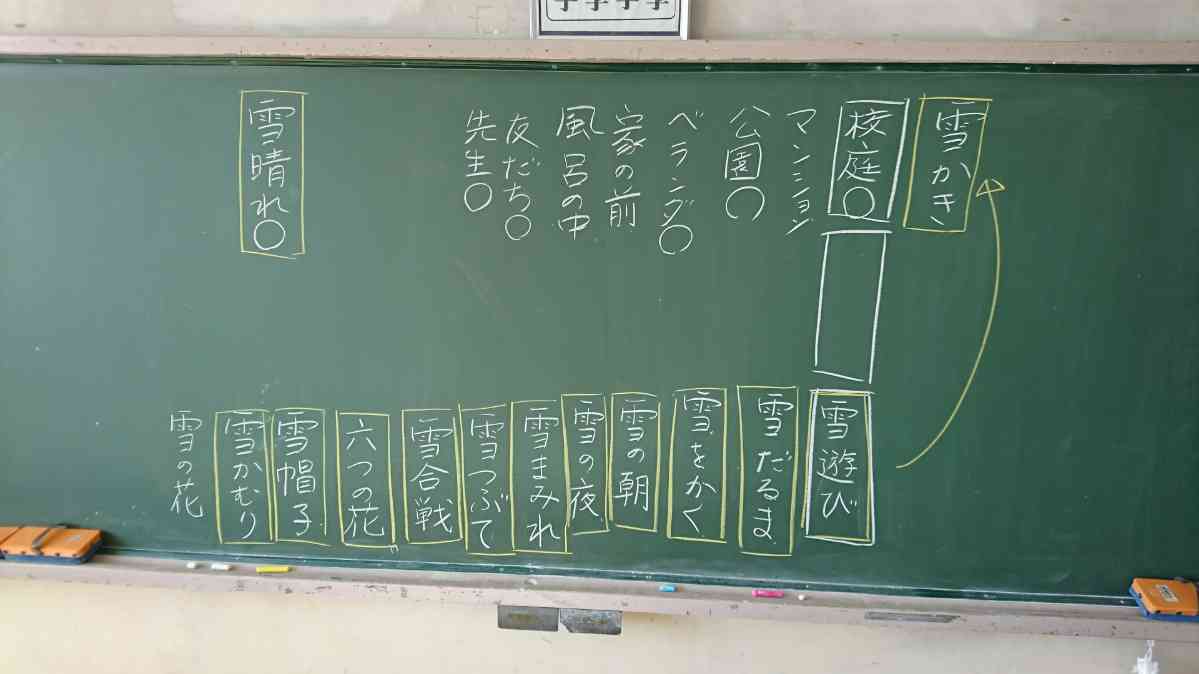 雪かき
校庭〇
マンション
公園〇
ベランダ〇
家の前
風呂の中
友だち〇
先生〇
雪晴れ〇
雪遊び
雪だるま
雪をかく
雪の朝
雪の夜
雪まみれ
雪つぶて
雪合戦
六つの花
雪帽子
雪かむり
雪の花